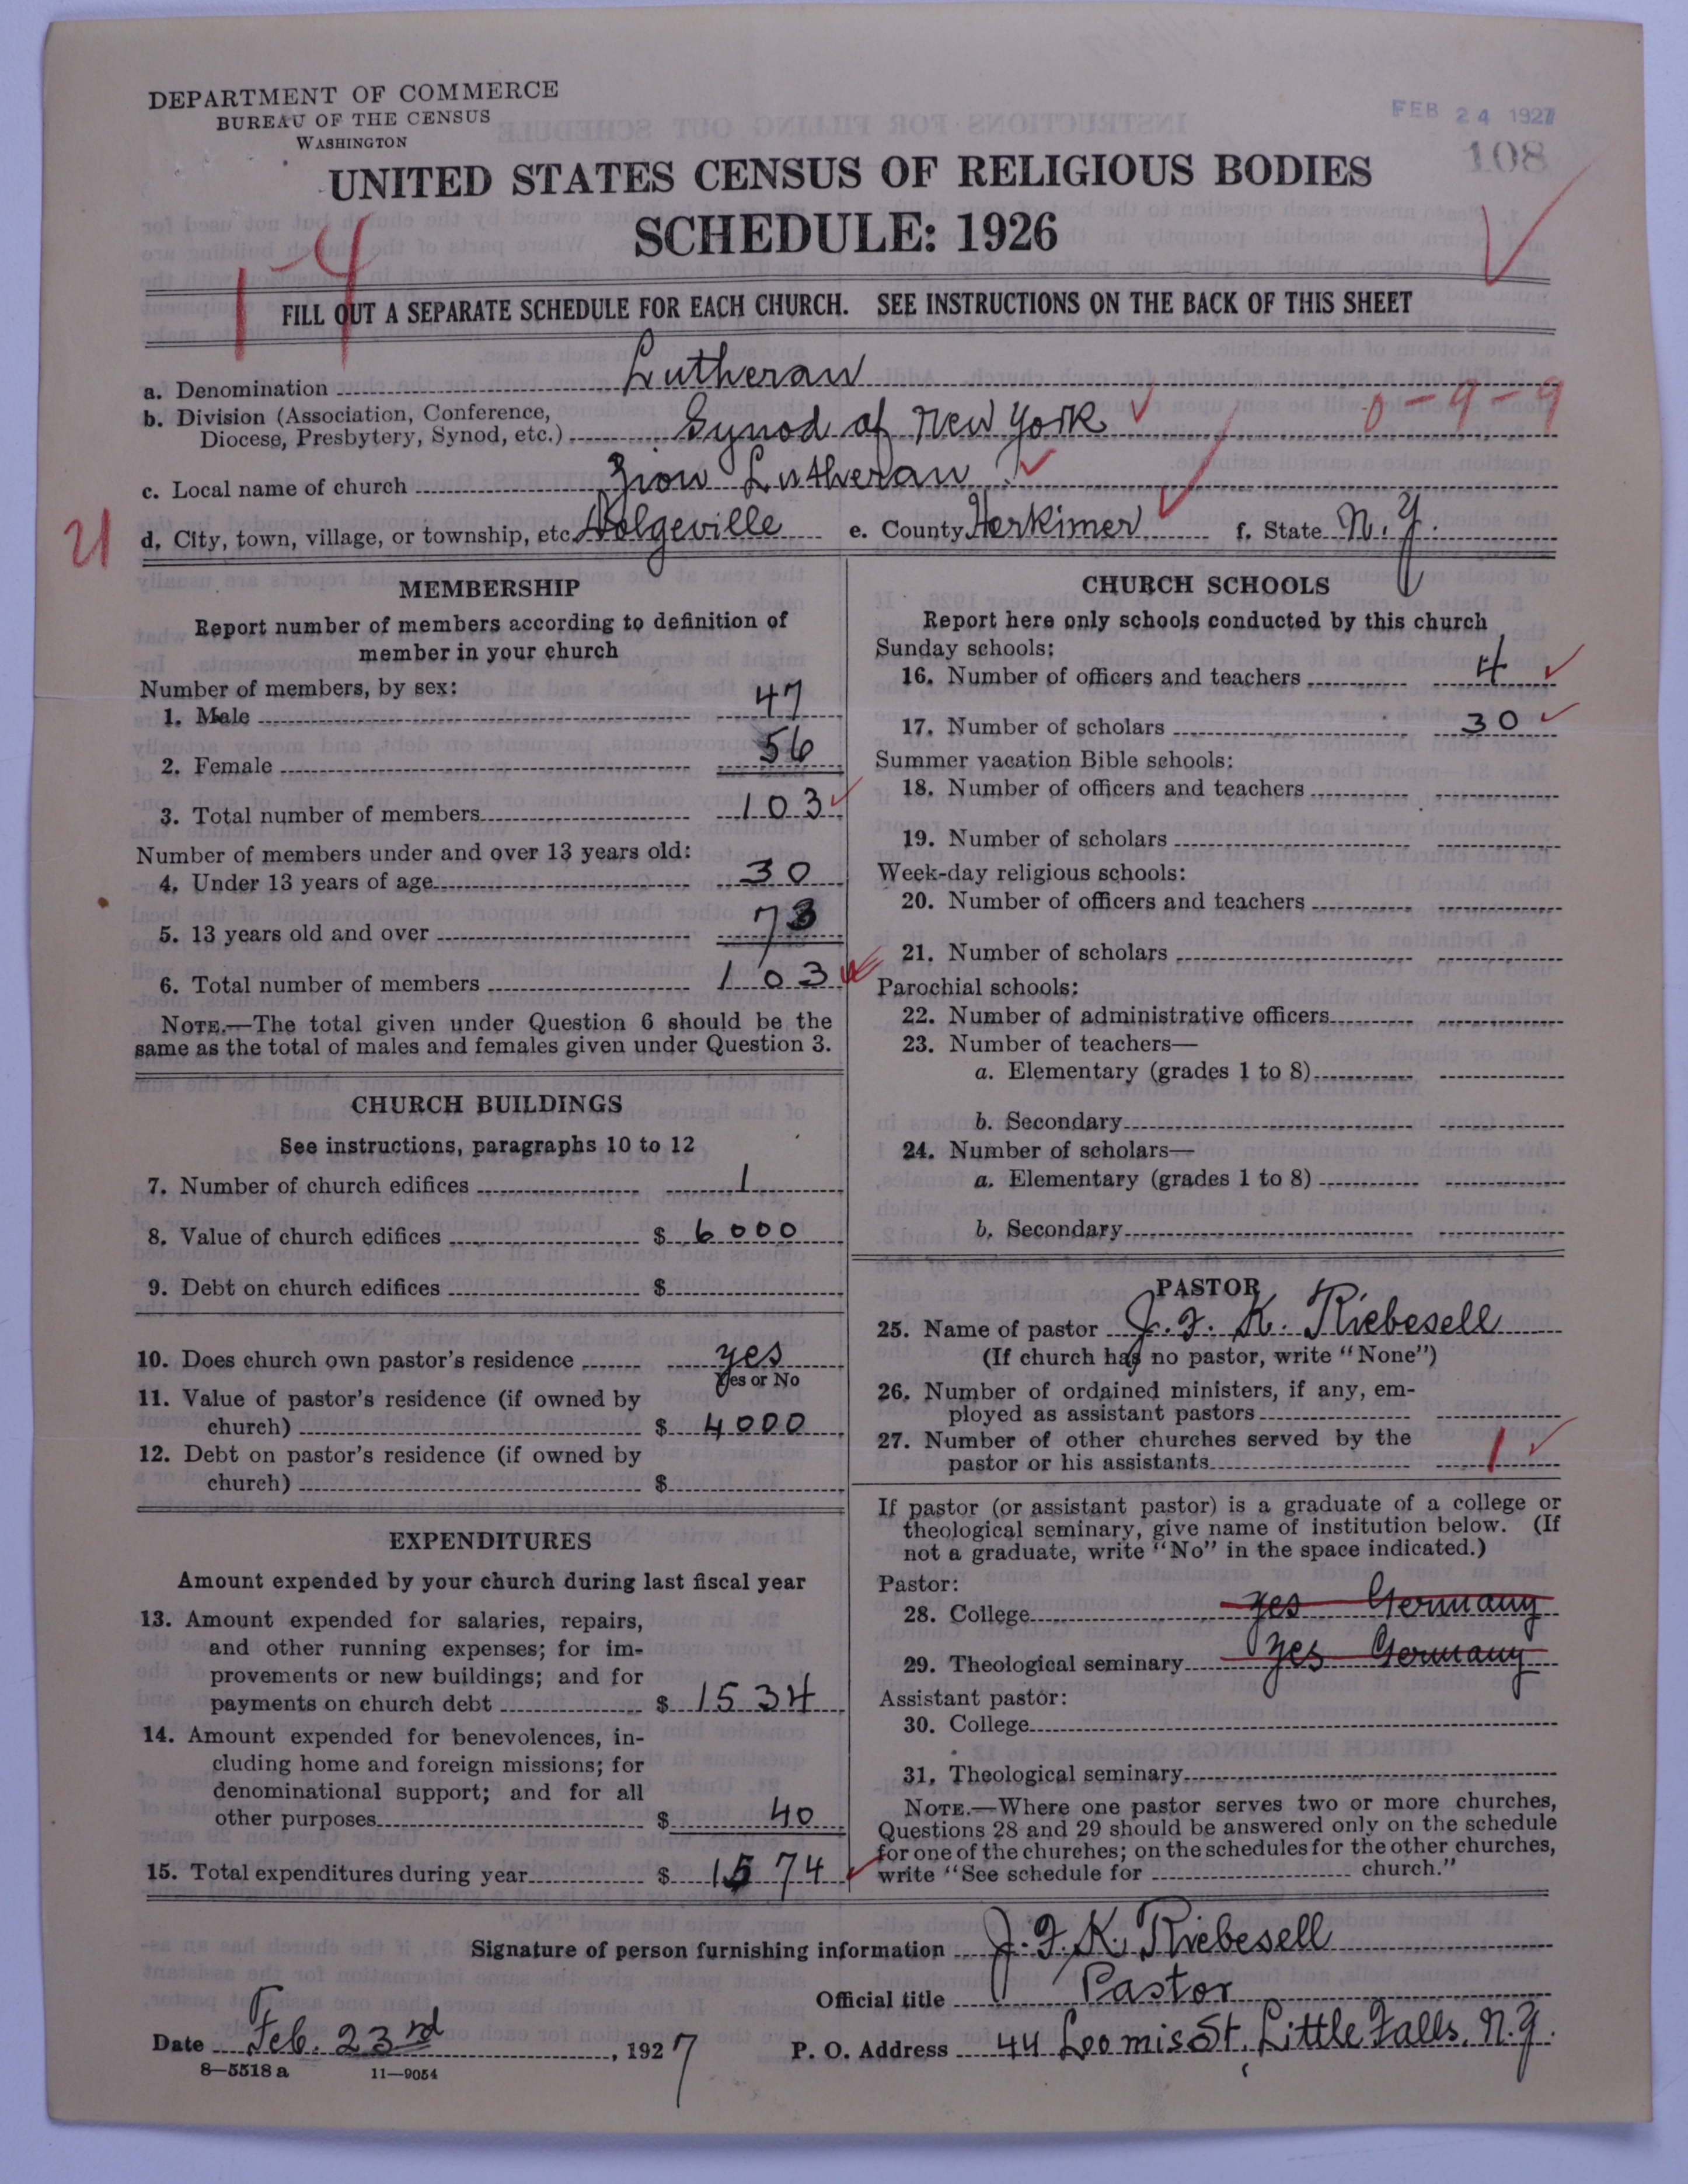 DEPARTMENT OF COMMERCE
BUREAU OF THE CENSUS
WASHINGTON
FEB 24 1927
108
UNITED STATES CENSUS OF RELIGIOUS BODIES
SCHEDULE: 1926
14
FILL OUT A SEPARATE SCHEDULE FOR EACH CHURCH. SEE INSTRUCTIONS ON THE BACK OF THIS SHEET
a. Denomination Lutheran
b. Division (Association, Conference,
Diocese, Presbytery, Synod, etc.) Synod of New York
0-9-9
c. Local name of church Zion Lutheran
21
d. City, town, village, or township, etc. Dolgeville e. County Herkimer f. State N. Y.
MEMBERSHIP
Report number of members according to definition of
member in your church
Number of members, by sex:
1. Male 47
2. Female 56
3. Total number of members 103
Number of members under and over 13 years old:
4. Under 13 years of age 30
5. 13 years old and over 73
6. Total number of members 103
NOTE.—The total given under Question 6 should be the
same as the total of males and females given under Question 3.
CHURCH BUILDINGS
See instructions, paragraphs 10 to 12
7. Number of church edifices 1
8. Value of church edifices $ 6000
9. Debt on church edifices $
10. Does church own pastor's residence yes
Yes or No
11. Value of pastor's residence (if owned by
church) $ 4000
12. Debt on pastor's residence (if owned by
church) $
EXPENDITURES
Amount expended by your church during last fiscal year
13. Amount expended for salaries, repairs,
and other running expenses; for im-
provements or new buildings; and for
payments on church debt $ 1534
14. Amount expended for benevolences, in-
cluding home and foreign missions; for
denominational support; and for all
other purposes $ 40
15. Total expenditures during year $ 1574
CHURCH SCHOOLS
Report here only schools conducted by this church
Sunday schools:
16. Number of officers and teachers 4
17. Number of scholars 30
Summer vacation Bible schools:
18. Number of officers and teachers
19. Number of scholars
Week-day religious schools:
20. Number of officers and teachers
21. Number of scholars
Parochial schools:
22. Number of administrative officers
23. Number of teachers—
a. Elementary (grades 1 to 8)
b. Secondary
24. Number of scholars—
a. Elementary (grades 1 to 8)
b. Secondary
PASTOR
25. Name of pastor J. F. K. Riebesell
(If church has no pastor, write "None")
26. Number of ordained ministers, if any, em-
ployed as assistant pastors
27. Number of other churches served by the
pastor or his assistants 1
If pastor (or assistant pastor) is a graduate of a college or
theological seminary, give name of institution below. (If
not a graduate, write "No" in the space indicated.)
Pastor:
28. College yes Germany
29. Theological seminary yes Germany
Assistant pastor:
30. College
31. Theological seminary
NOTE.—Where one pastor serves two or more churches,
Questions 28 and 29 should be answered only on the schedule
for one of the churches; on the schedules for the other churches,
write "See schedule for church."
Signature of person furnishing information J. F. K. Riebesell
Official title Pastor
Date Feb. 23rd, 1927 P. O. Address 44 Loomis St, Little Falls, N.Y.
8—5518 a 11—9054